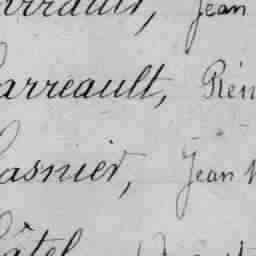 arrault, Jean
arreault, Rén
asnier, Jean
âtel